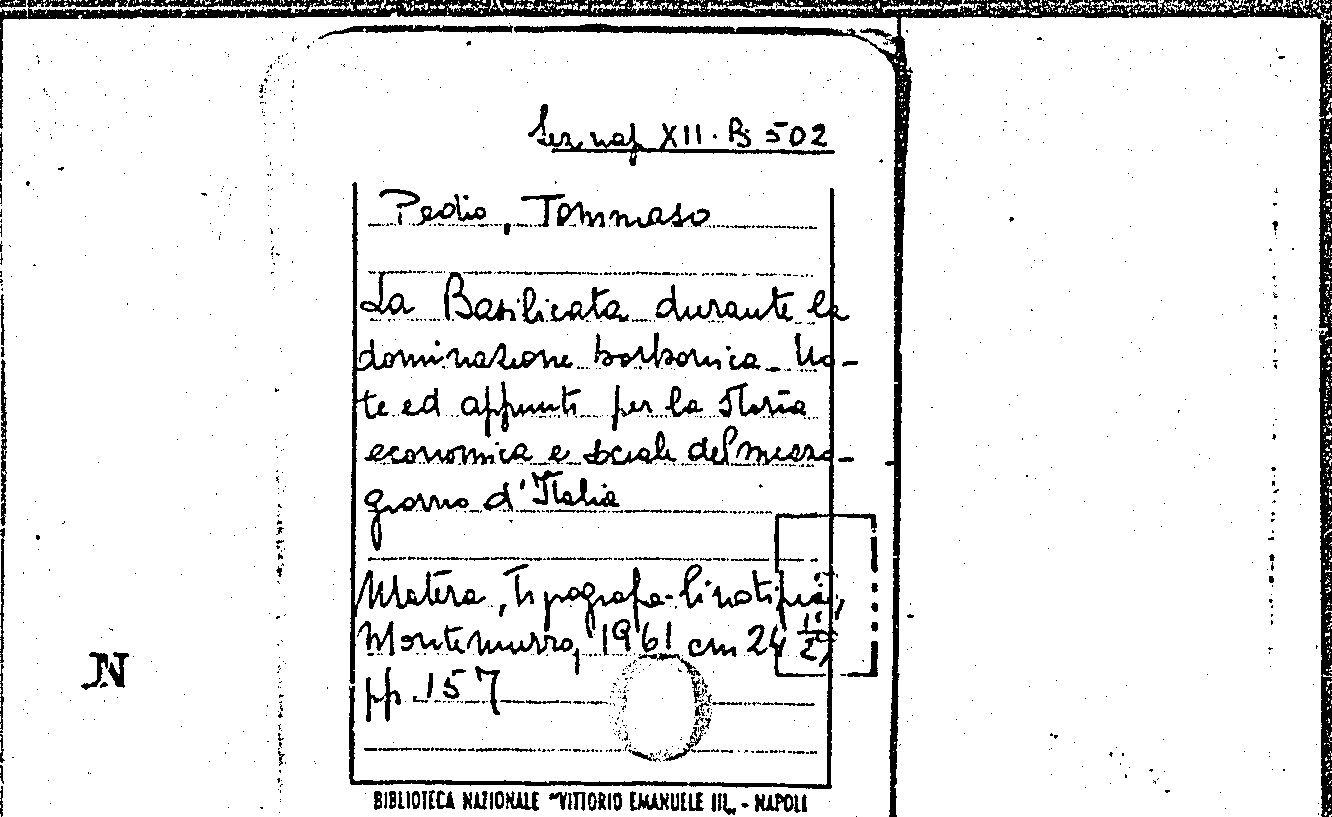 Sez. nap. XII. B 502
Pedio, Tommaso
La Basilicata durante la
dominazione borbonica_ No-
te ed appunti per la storia
economica e sociale del mezzo-
giorno d'Italia
Matera, Tipografia-linotipia,
Montemurro, 1961 cm 24
pp. 157
N
BIBLIOTECA NAZIONALE "VITTORIO EMANUELE III„ - NAPOLI